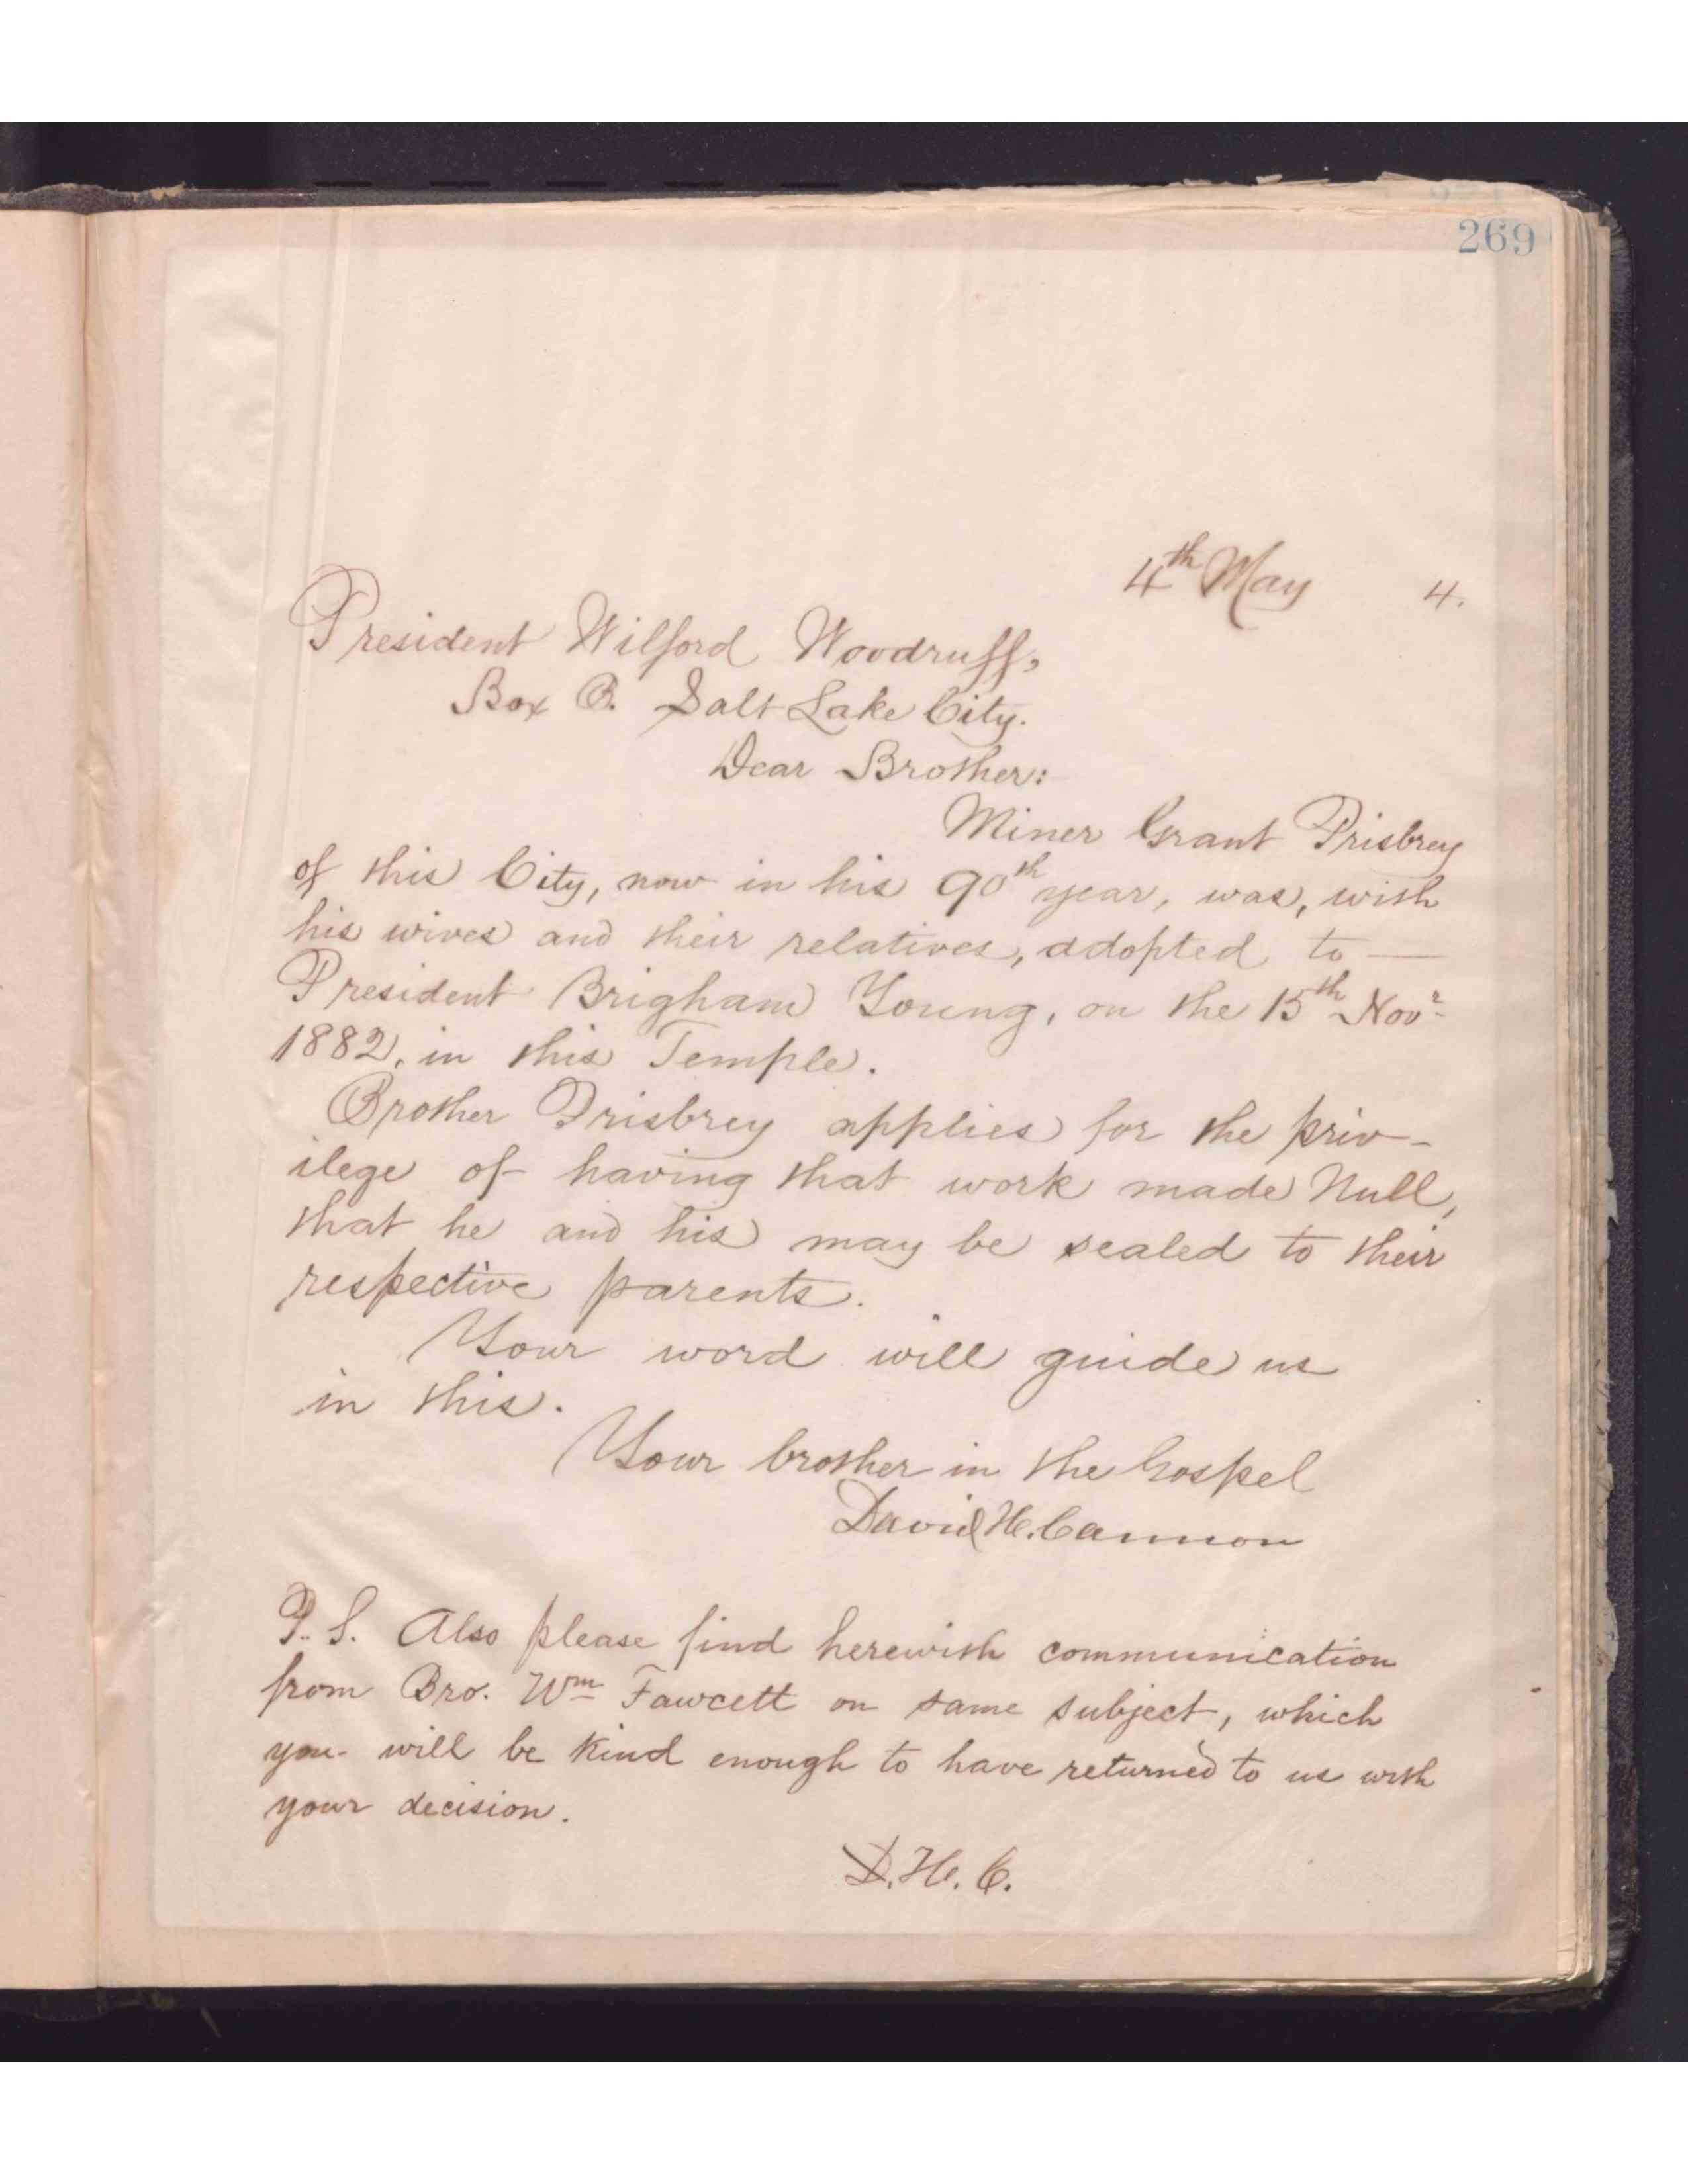 269
4th May 4.
President Wilford Woodruff,
Box B. Salt Lake City.
Dear Brother:
Miner Grant Prisbrey
of this City, now in his 90th year, was, with
his wives and their relatives, adopted to —
President Brigham Young, on the 15th Novr
1882, in this Temple.
Brother Prisbrey applies for the priv-
ilege of having that work made Null,
that he and his may be sealed to their
respective parents.
Your word will guide us
in this.
Your brother in the Gospel
David H. Cannon
P.S. Also please find herewith communication
from Bro. Wm Fawcett on same subject, which
you will be kind enough to have returned to us with
your decision.
D. H. C.